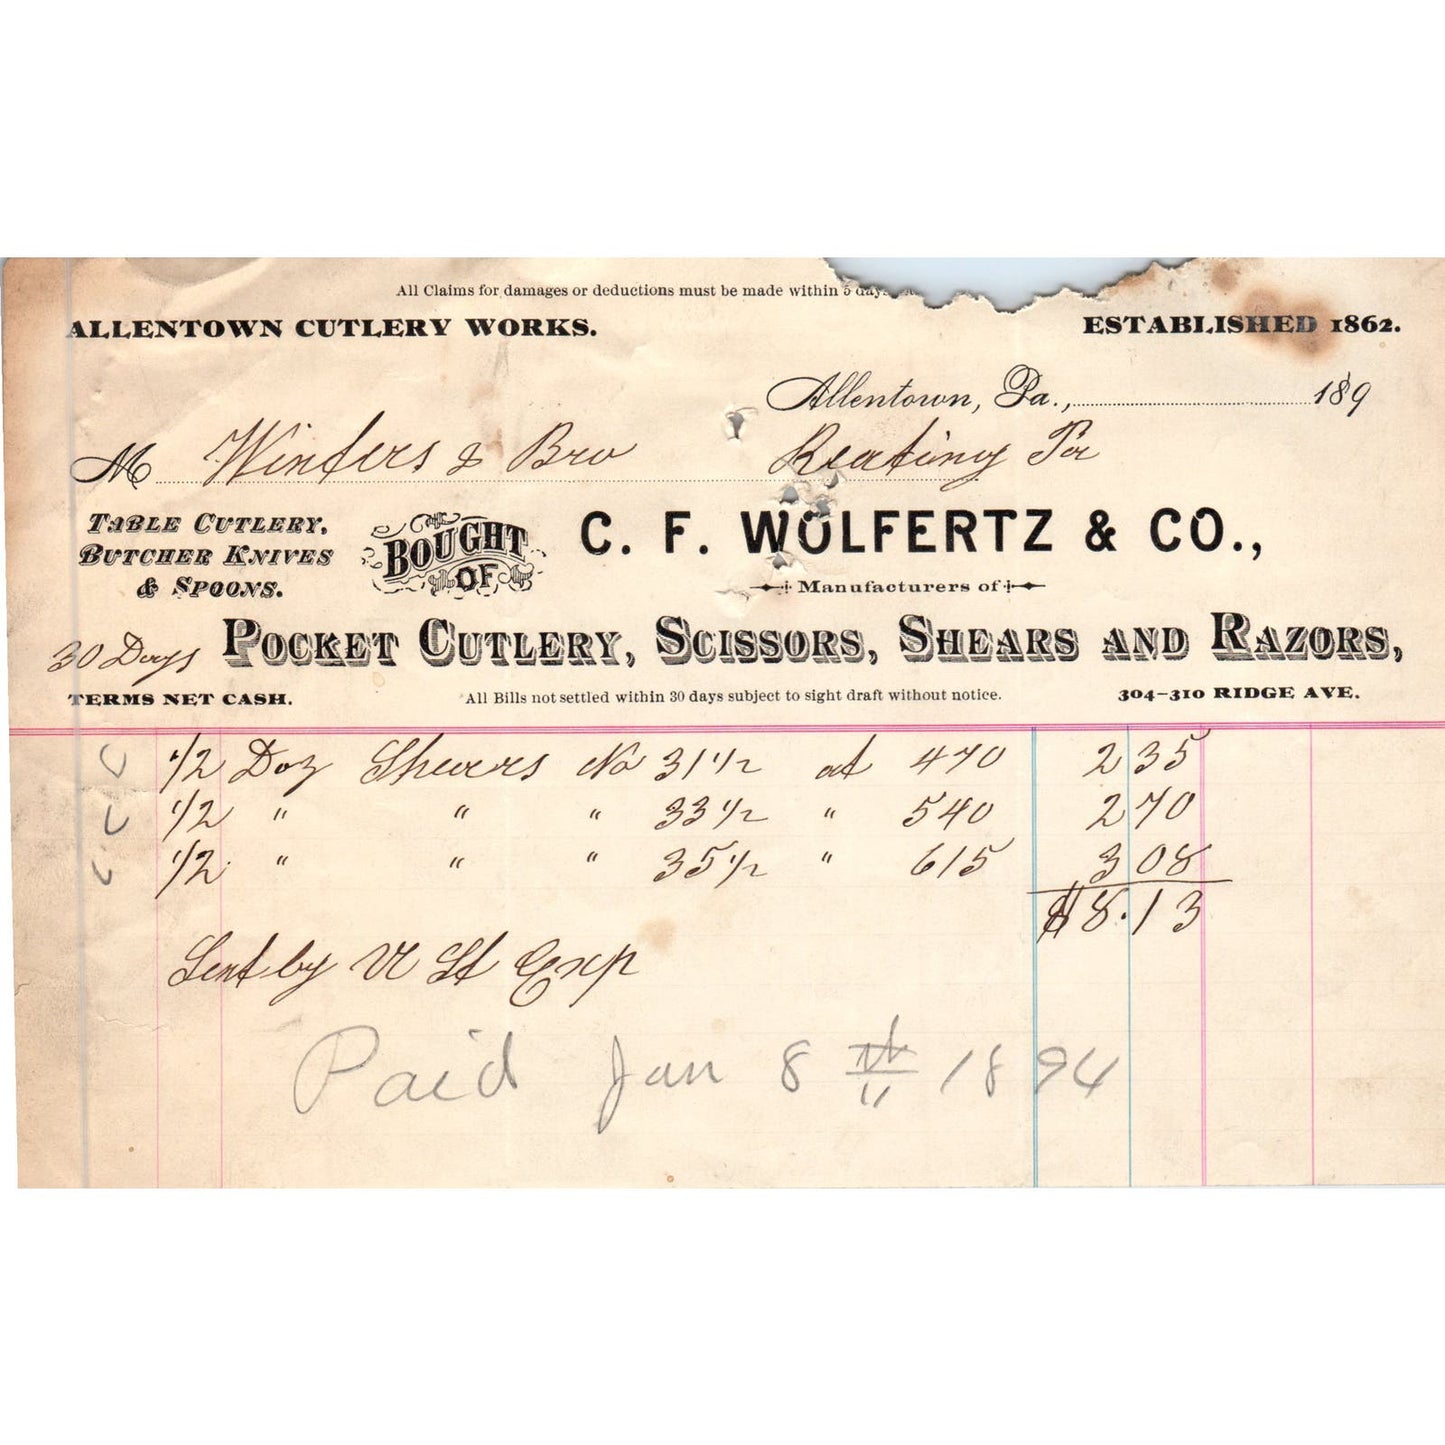 All Claims for damages or deductions must be made within 5 days
ALLENTOWN CUTLERY WORKS. ESTABLISHED 1862.
Allentown, Pa., 189
M Winters & Bro Keating Pa
TABLE CUTLERY, BUTCHER KNIVES & SPOONS.
BOUGHT OF
C. F. WOLFERTZ & CO.,
Manufacturers of
30 Days POCKET CUTLERY, SCISSORS, SHEARS AND RAZORS,
TERMS NET CASH. All Bills not settled within 30 days subject to sight draft without notice. 304-310 RIDGE AVE.
1/2 Doz Shears No 31 1/2 at 470 2 35
1/2 " " " 33 1/2 " 540 2 70
1/2 " " " 35 1/2 " 615 3 08
$8.13
Sent by Exp
Paid Jan 8th 1894